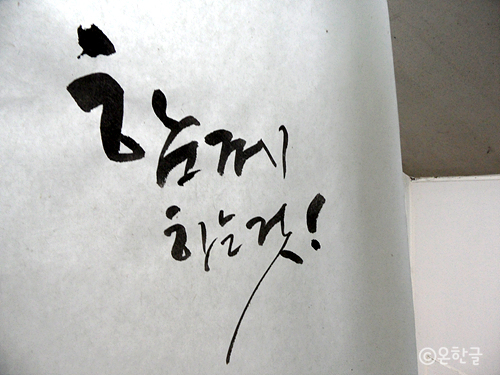 함께
하는것!
©온한글